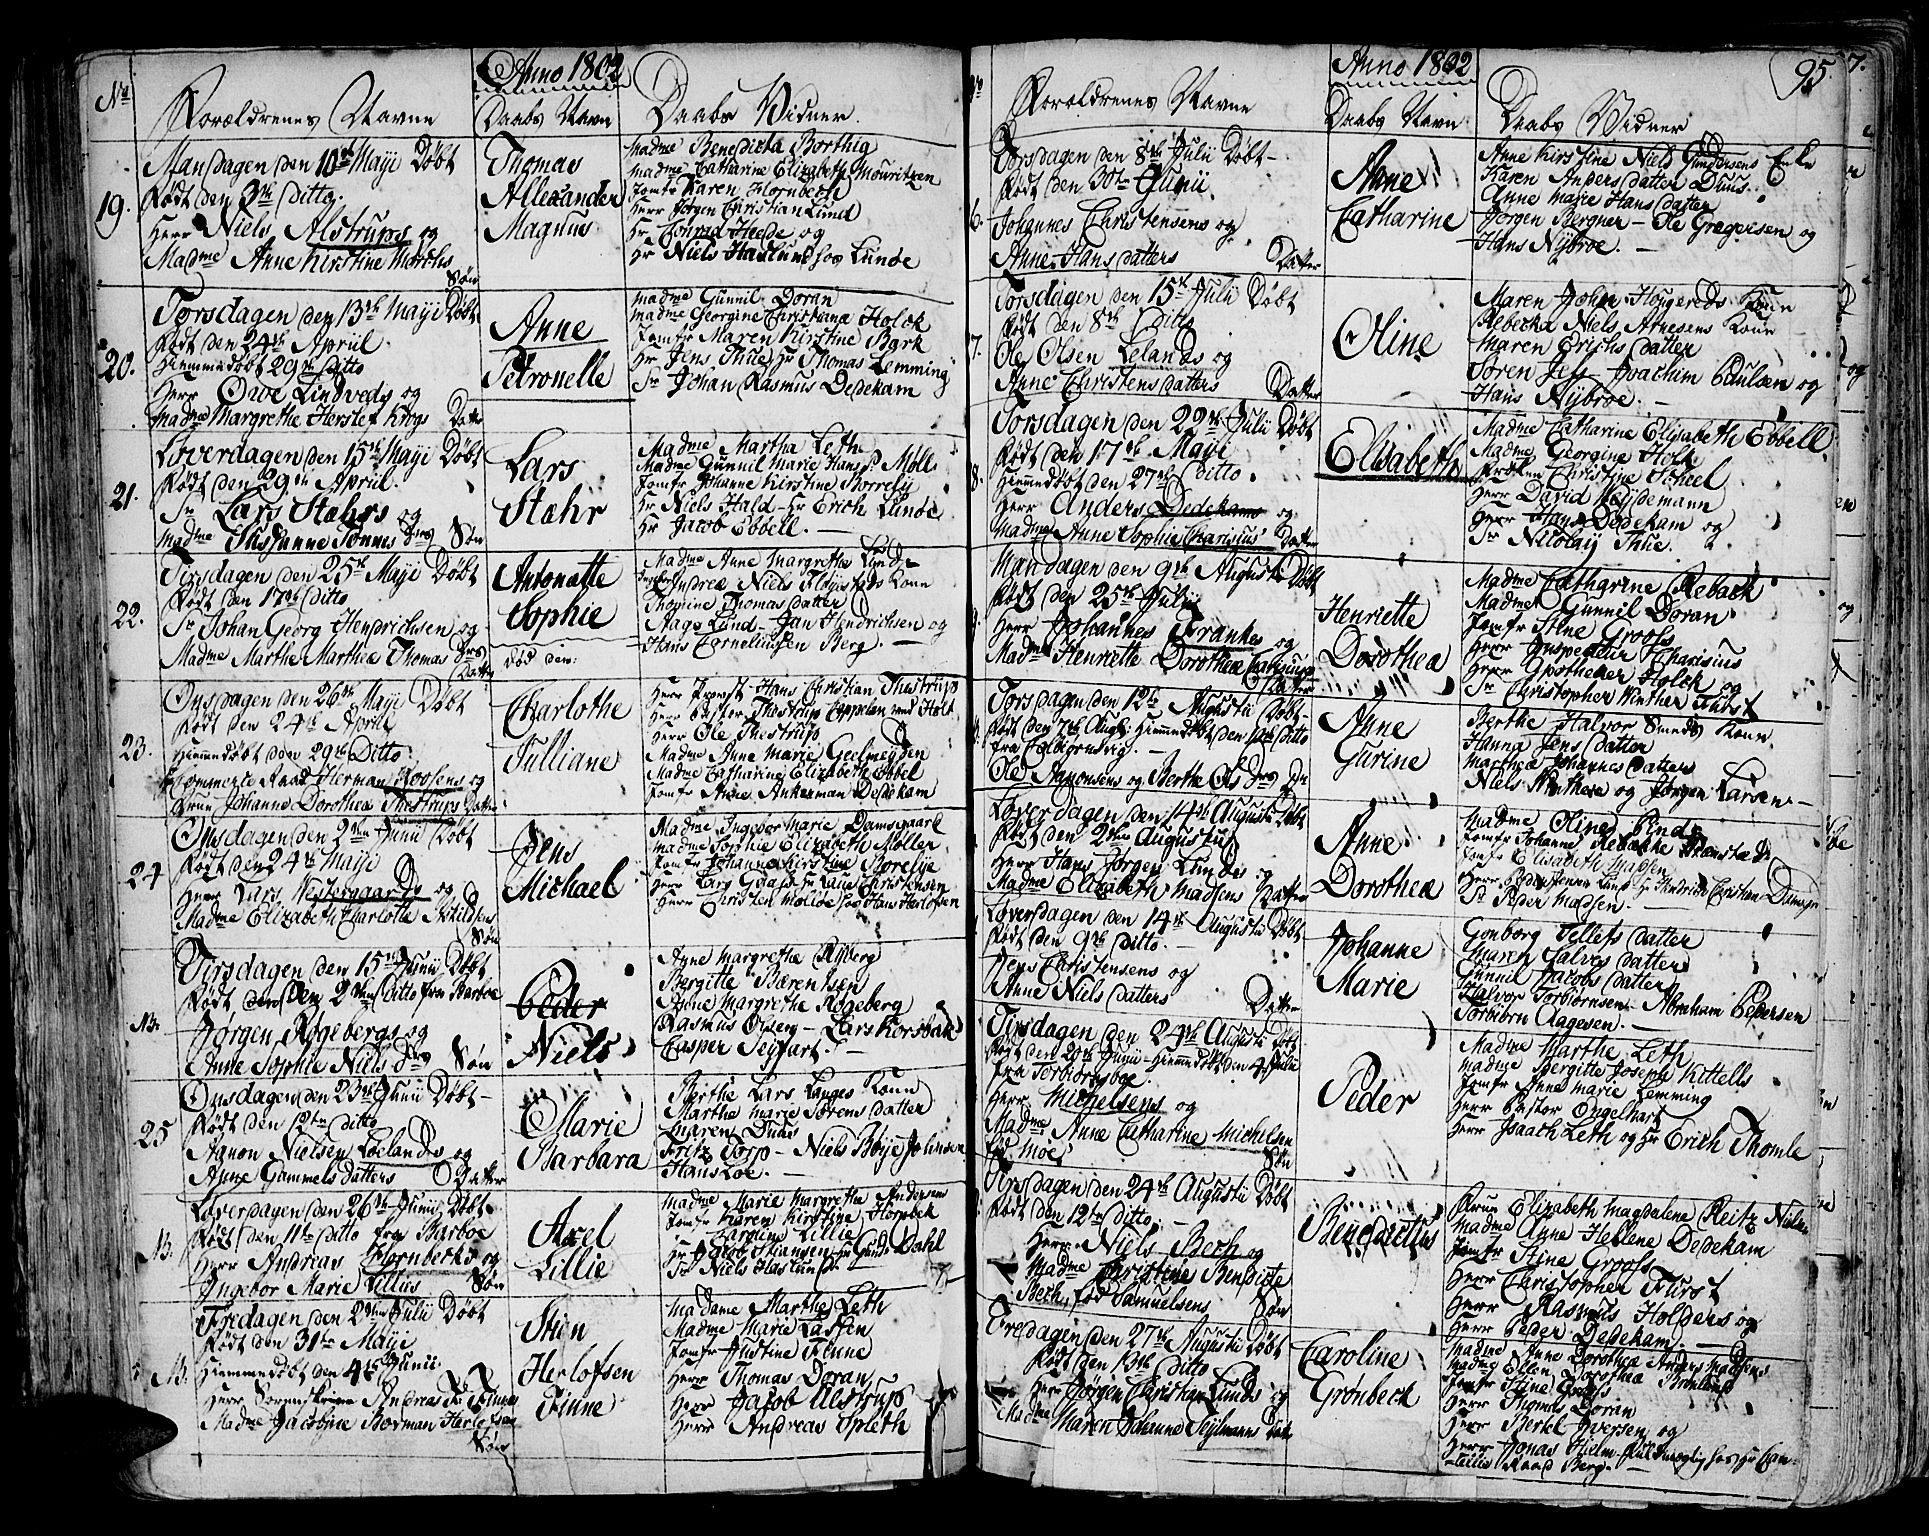 No
Anno 1802
Forældrenes Navne
Daabs Navn
Daabs Vidner.
19.
Mandagen den 10de Maji Døbt
Født den 3de Ditto.
Herr Niels Alstrups og
Madme Anne Kirstine Morchs
Søn
Thomas
Allexander
Magnus
Madme Benedicta Borthig
Madme Catharine Elizabeth Mouritzen
Jomfr Karen Hornbech
Herr Jørgen Christian Lund
Hr Conrad Heede og
Hr Niels Haslund hos Lunde
20.
Torsdagen den 13de Maji Døbt
Født den 24de April.
Hiemmedøbt 29de Ditto
Herr Owe Lindveds og
Madme Margrethe Herslef Krogs Datter
Anne
Petronelle
Madme Gunnil Doran
Madme Georgine Christiana Holck
Jomfr Maren Kirstine Bark
Hr Jens Thue, Hr Thomas Lemming
Sr Johan Rasmus Dedekam
21.
Løverdagen den 15de Maji Døbt
Født den 29de April.
Sr Lars Stæhrs og
Madme Susanne Tønnes Drs Søn
Lars
Stæhr
Madme Martha Leth
Madme Gunnil Marie Hans Sr Møll
Jomfr Johanne Kirstine Borrely
Hr Niels Hald - Hr Erich Lunde
Hr Jacob Ebbell. —
22.
Tirsdagen den 25de Maji Døbt
Født den 17de Ditto
Sr Johan Georg Hendrichsen og
Madme Marthe Marthea Thomas Drs
Datter
Antonette
Sophie
død den:
Madme Anne Margrethe Lund
Andrea Niels Kone
Thorine Thomas Datter
Aage Lund - Jan Hendrichsen og
Hans Corneliussen Berg. —
23.
Onsdagen den 26de Maji Døbt
Født den 24de April
Hiemmedøbt den 29de Ditto
Commerce Raad Herman Roosens og
Frue Johanne Dorothea Thestrups Datter
Charlothe
Julliane
Herr Provst Hans Christian Thestrup
Herr Pastor Thestrup Cappelan ved Holt
Herr Ole Thestrup
Madme Anne Marie Geelmeyden
Madme Catharine Elizabeth Ebbel
Jomfr Anne Ankerman Dedekam
24
Onsdagen den 2den Junii Døbt
Født den 24de Maji
Herr Lars Westergaards og
Madme Elizabeth Charlotte Nitildsen
Søn
Jens
Michael
Madme Ingebor Marie Damsgaard
Madme Sophie Elizabeth Møller
Jomfr Johanne Kirstine Borelje
Herr Lars Gaas, Hr Laus Christensen
Herr Christen Molboe hos Hans Herlofsen
NB.
Tirsdagen den 15de Junii Døbt
Født den 2den Ditto fra Barboe
Jørgen Røgebergs og
Anne Sophie Niels Drs Søn
Peder
Niels
Anne Margrethe Ryberg
Bergitte Bærentsen
Anne Margrethe Røgeberg
Rasmus Olsen - Lars Korsbek
Casper Seyfart. —
25
Onsdagen den 23de Junii Døbt -
Født den 12te Ditto
Aanon Nielsen Loelands og
Anne Gammels datters Datter
Marie
Barbara
Berthe Lars Langes Kone
Marthe Marie Sørens Datter
Maren Duus
Fritz Torp - Niels Boye Johnsen
Hans Loe. —
NB.
Løverdagen den 26de Junii Døbt
Født den 11te Ditto fra Barboe
Herr Andreas Hornbechs og
Ingebor Marie Lillies Søn
Axel
Lillie
Madme Marie Margrethe Andersen
Jomfr Karen Kirstine Hornbek
Caroline Lillie
Hr Jacob Hansen, Hr Gunder Dahl
Sr Niels Haslund.
NB.
Fredagen den 2den Julii Døbt
Født den 31te Maji
Hiemmedøbt den 4de Junii
Herr Sorenskriver Andreas Finnes
Madme Jacobine Borman Herlofsen
Søn
Stien
Herlofsen
Finne
Madame Marthe Leth
Madme Marie Lassen
Jomfr Justine Finne
Herr Thomas Doran
Herr Jacob Alstrup
Herr Andreas Spleth
No
Anno 1802
95
7.
Forældrenes Navne
Daabs Navn
Daabs Vidner
6.
Torsdagen den 8de Julii Døbt -
Født den 30te Junii
Johannes Christensens og
Anne Hans Datters Datter
Anne
Catharine
Anne Kirstine Niels Gundersens Enke
Karen Anders Datter Duus
Anne Marie Hans Datter
Jørgen Bergner - Ole Gregersen og
Hans Nyebroe. —
7.
Torsdagen den 15de Julii Døbt
Født den 8de Ditto
Ole Olsen Lelands og
Anne Christens datters Datter
Oline
Maren John Hougereds Kone
Rebecka Niels Arnesens Kone
Maren Erichs Datter
Søren Joachim Paulsen og
Hans Nyebroe. —
8.
Torsdagen den 22de Julii Døbt
Født den 17de Maji
Hiemmedøbt den 27de Ditto.
Herr Anders Dedekams og
Madme Anne Sophie Charisius' Datter
Elisabeth
Madme Catharine Elisabeth Ebbell
Madme Georgine Holk
Frøken Christine Scheel
Herr David Weydemann
Herr Hans Dedekam og
Sr Nicolay Thue.
9.
Mandagen den 9de Augusti Døbt
Født den 25de Julii
Herr Johannes Frankes og
Madme Henriette Dorothea Charisius
Datter
Henriette
Dorothea
Madme Catharine Reback
Madme Gunnil Doran
Jomfr Stine Grooss
Herr Inspecteur Charisius
Herr Apotheker Holck og
Sr Christopher Winther Fürst
Torsdagen den 12te Augusti Døbt -
Født den 7de Aug. Hiemmedøbt den 10de Ditto
fra Colbjørnsvig. —
Ole Aamonsens og Berthe Ols Drs Dr
Anne
Gurine
Berthe Halvor Smeds Kone
Hanna Jens Datter
Marthea Johannes Datter
Niels Winther og Jørgen Larsen -
Løverdagen den 14de Augusti Døbt
Født den 2den Augustus
Herr Hans Jørgen Lundes og
Madme Elizabeth Madsens Datter
Anne
Dorothea
Madme Oline Lind
Jomfr Johanne Rebække
Jomfr Elisabeth Madsen
Herr Hr Hendrich Christian Damsgn
Sr Peder Madsen. —
Løverdagen den 14de Augusti Døbt
Født den 9de Ditto.
Jens Christensens og
Anne Niels Datters Datter
Johanne
Marie
Gonborg Tellefs Datter
Maren Salves Datter
Gunnil Jacobs Datter
Halvor Torbiørnsen - Abraham Pedersen
Torbiørn Aagesen. —
Tirsdagen den 24de Augusti Døbt
Født den 29de Junii - Hiemmedøbt den 4de Julii
fra Torbiørnsboe.
Herr Michelsens og
Madme Anne Catharine Michelsen
fød Moe. Søn
Peder
Madme Marthe Leth
Madme Bergitte Joseph Kittells
Jomfr Anne Marie Lemming
Herr Pastor Engelhart
Herr Isaach Leth og Hr Erich Thomle
Tirsdagen den 24de Augusti Døbt
Født den 12te Ditto.
Herr Niels Bech og
Madme Christine Bendicte
Bech, fød Samuelsens Søn
Benedictus
Frue Elizabeth Magdalene Reitz Nielsen
Madme Anne Hellene Dedekam
Jomfr Stine Grooss
Herr Christopher Fürst
Herr Rasmus Holders og
Herr Peder Dedekam.
Fredagen den 27de Augusti Døbt
Født den 13de Ditto
Herr Jørgen Christian Lunds og
Madme Maren Johanne Seylmanns Datter
Caroline
Grønbeck
Madme Anne Dorothea Anders Madsens
Madme Ellen Dorothea Brinlund
Jomfr Stine Grooss
Herr Thomas Doran
Herr Bertel Iversen og
Herr Jonas Hielm - Fuldmægtig hos Hr Can-
cellie Raad Berg. —